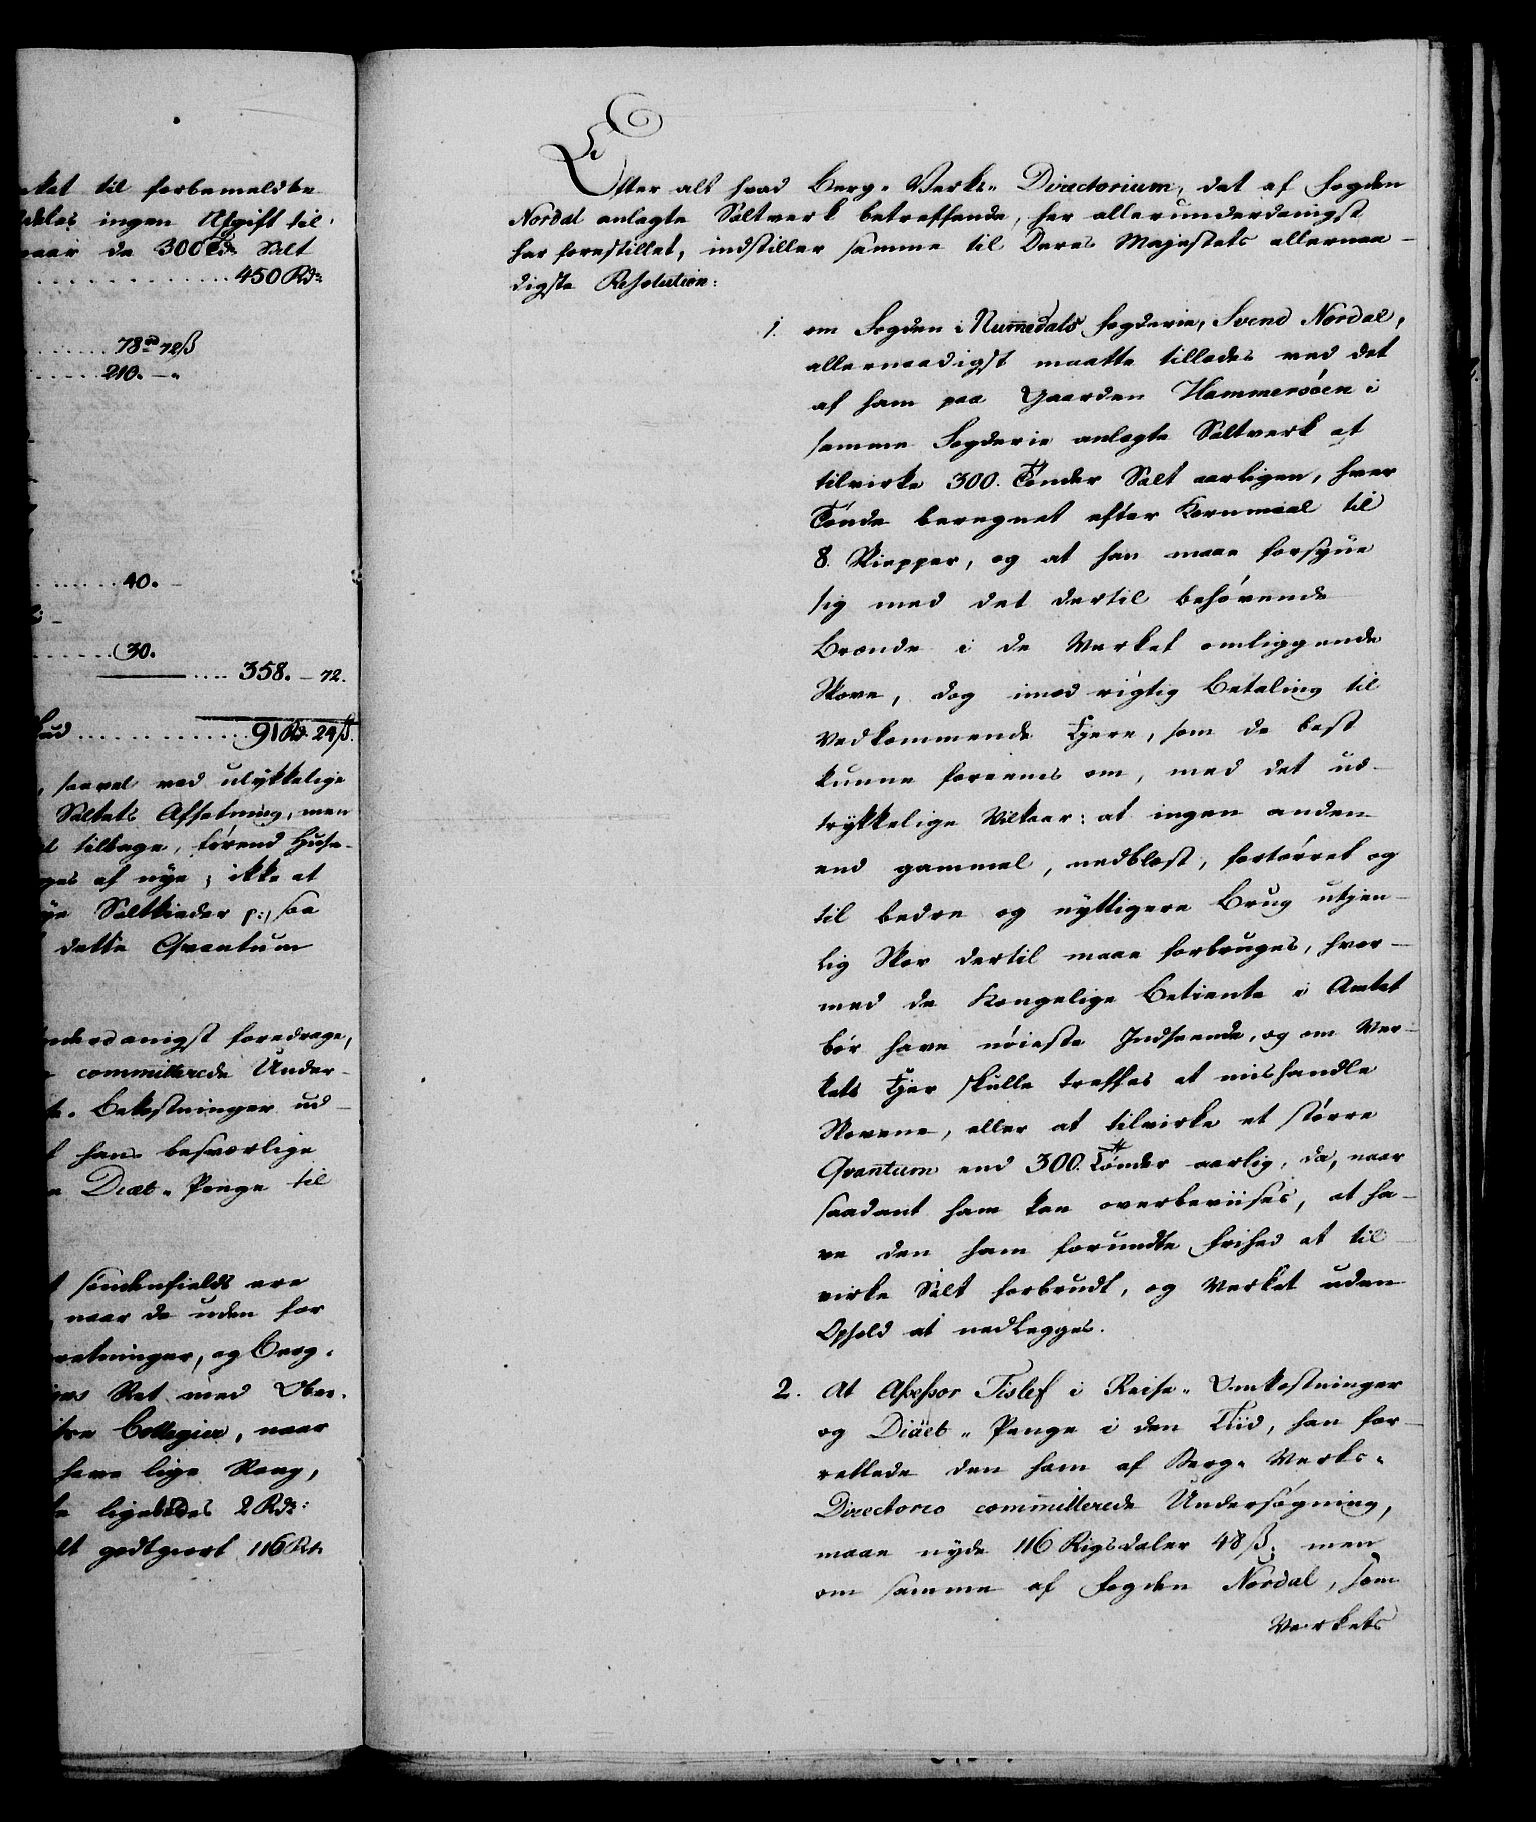 ket til forbemeldte
ingen Afgift til
naar de 300 Tdr Salt
. . . . . . . . . . . . 450 Rdr
. . . . . . 78 rd 72 ß
. . . . . 210. — „
. . . . . . 40. —
. . . . . . 30.
———— . . . . 358. — 72.
. . . . . . . . . . . . . 91 Rd. 24 ß.
, saavel ved ulykkelige
Saltets Afsætning, men
tilbage, førend Huse-
ges af nye; ikke at
Saltkieder p:, saa
dette Qvantum
underdanigst foredrage,
committerede Under-
Bekostninger ud-
hans besværlige
Diæt-Penge til
søndenfields ere
naar de uden for
retninger, og Berg-
Ret med Ober-
Collegier, naar
have lige Rang,
ligeledes 2 Rdr:
godtgiort 116 Rdr
Efter alt hvad Berg-Verks-Directorium, det af Fogden
Nordal anlagte Saltverk betreffende, her allerunderdanigst
har forestillet, indstiller samme til Deres Majestets allernaa-
digste Resolution:
1. om Fogden i Nummedals Fogderie, Svend Nordal,
allernaadigst maatte tillades ved det
af ham paa Gaarden Hammersöen i
samme Fogderie anlagte Saltverk at
tilvirke 300. Tønder Salt aarligen, hver
Tønde beregnet efter Kornmaal til
8. Skiepper, og at han maae forsyne
sig med det dertil behøvende
Brænde i de Verket omliggende
Skove, dog imod rigtig Betaling til
Vedkommende Ejere, som de best
kunne foreenes om, med det ud-
trykkelige Vilkaar: at ingen anden
end gammel, nedblæst, fortørret og
til bedre og nyttigere Brug utjen-
lig Skov dertil maae forbruges, hvor-
med de Kongelige Betiente i Amtet
bør have nøieste Indseende, og om Ver-
kets Ejer skulle treffes at mishandle
Skovene, eller at tilvirke et større
Qvantum end 300. Tønder aarlig, da, naar
saadant ham kan overbeviises, at ha-
ve den ham forundte Frihed at til-
virke Salt forbrudt, og Verket uden
Ophold at nedlegges.
2. At Assessor Tislef i Reise-Omkostninger
og Diäet-Penge i den Tiid, han for-
rettede den ham af Berg-Verks-
Directorio committerede Undersøgning,
maae nyde 116 Rigsdaler 48 ß; men
om samme af Fogden Nordal, som
Verkets